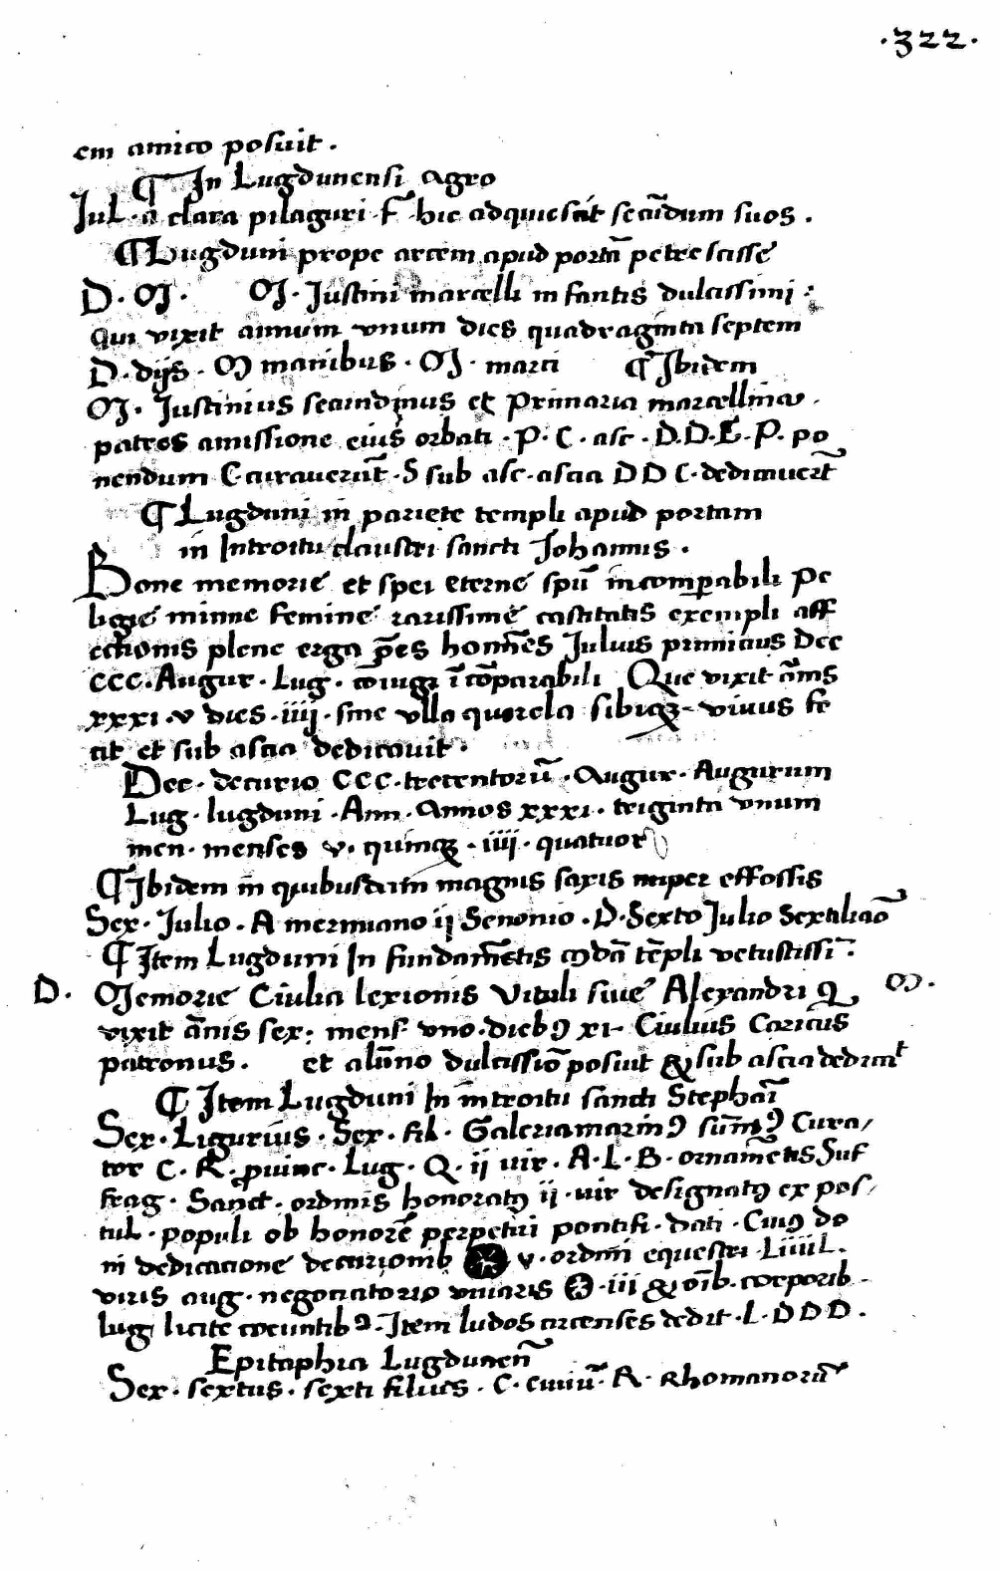 .322.
em amico posuit.
¶ In Lugdunensi agro
Jul. a clara pilaguri f̄ hic adquiescit secūdum suos.
¶ Lugduni prope arcem apud portā petre scisse
D. M. M. Justini marcelli infantis dulcissimi:
Qui vixit annum vnum dies quadraginta septem
D. diis. M manibus. M. marci ¶ Ibidem
M. Justinius secundinus et Primaria marcellina.
patres amissione eius orbati. P. C. asc. D.D.E.P. po
nendum C. curaverūt. S sub asc. ascia D D C. dedicaverūt
¶ Lugduni in pariete templi apud portam
in Introitu claustri sancti Johannis.
Bone memorie et spei eterne spū incomparabili Pe
legie minne femine rarissime castitatis exempli aff
ectionis plene erga p̄es homīes Julius primicius Dec
CCC. Augur. Lug. coniugi īcōparabili Que vixit ānis
xxxi. v dies. iiij. sine vlla querela sibiqʒ vivus fe
cit et sub ascia dedicavit.
Dec. decurio CCC. trecentorū. Augur. Augurum
Lug. lugduni. Ann. Annos xxxi. triginta vnum
men. menses v. quinqʒ. iiij. quatuor
¶ Ibidem in quibusdam magnis saxis nuper effossis
Sex. Julio. A mermano ij Senonio. D. Sexto Julio Sextiliaō
¶ Item Lugduni In fundamētis cꝯdā tēpli vetustissī.
D. Memorie Ciulia lexionis Vitali sive Alexandri Q M.
vixit ānis sex: mens vno. diebꝯ xi Ciulius Caricus
patronus. et alūno dulcissīo posuit & sub ascia dedicat
¶ Item Lugduni In introitu sancti Stephāi
Sex. Ligurius. Sex. fil. Galeria marinꝯ sūmꝯ Cura/
tor C. R. provinc. Lug. Q. ii vir. A. L. B. ornamētis Suf
frag. Sanct. ordinis honoratꝯ ii. vir designatꝯ ex pos/
tul. populi ob honorē perpetui pontifi. dati. Cuiꝯ do
ni dedicatione decurionib v. ordini equestri. Liiii L.
viris aug. negotiatorio vinaris iii & oīb. corporib.
lug licite coeuntibꝯ. Item ludos circenses dedit. L. D D D.
Epitaphia Lugdunen̄
Sex. sextus. sexti filius. C. civiū. R. Rhomanorū